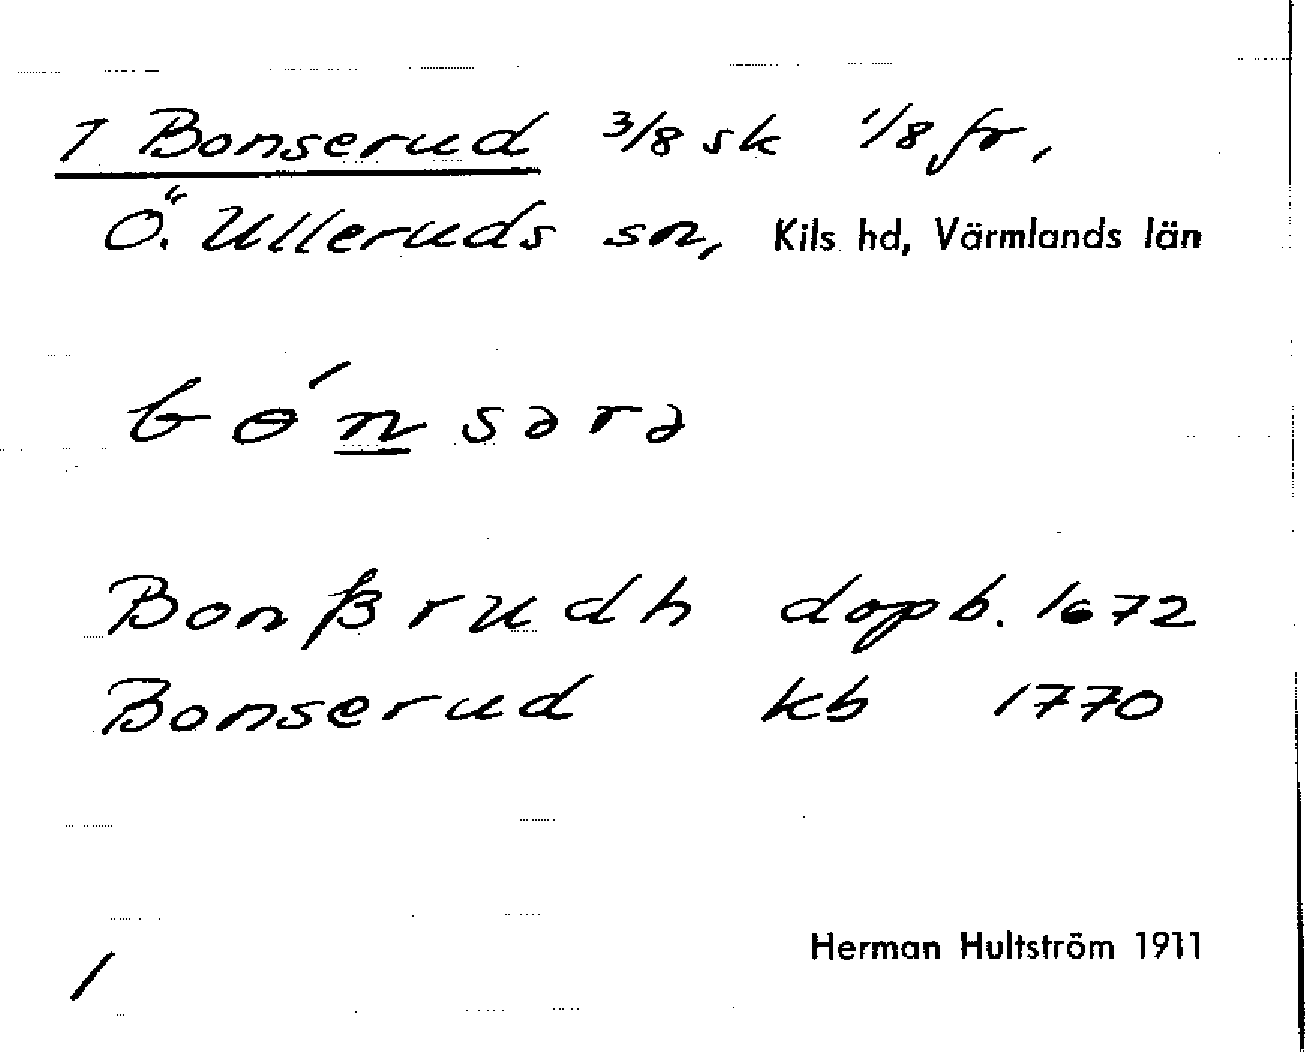 1 Bonserud 3/8 sk 1/8 fr,
Ö. Ulleruds sn, Kils hd, Värmlands län
bɵ́nsərə
Bonßrudh dopb. 1672
Bonserud kb 1770
Herman Hultström 1911
/